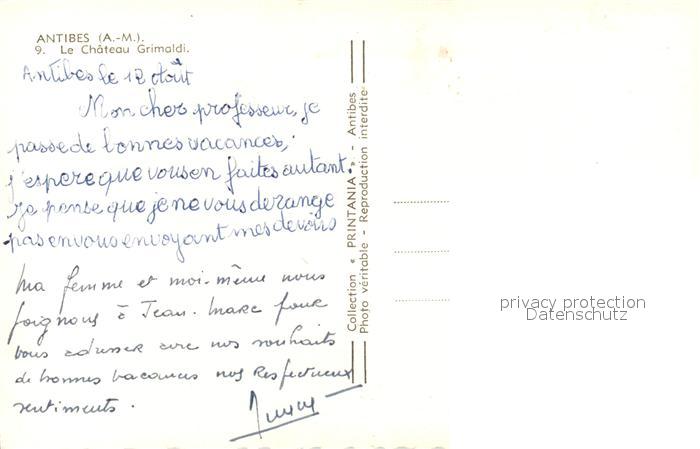 ANTIBES (A.-M.).
9. Le Château Grimaldi.
Antibes le 12 Août
Mon cher professeur, je
passe de bonnes vacances,
j'espere que vous en faites autant.
Je pense que je ne vous derange
pas en vous envoyant mes devoirs
Ma femme et moi-même nous
joignons à Jean-Marc pour
vous adresser avec nos souhaits
de bonnes vacances nos Respectueux
sentiments.
Collection « PRINTANIA » - Antibes -
Photo véritable - Reproduction interdite
privacy protection
Datenschutz